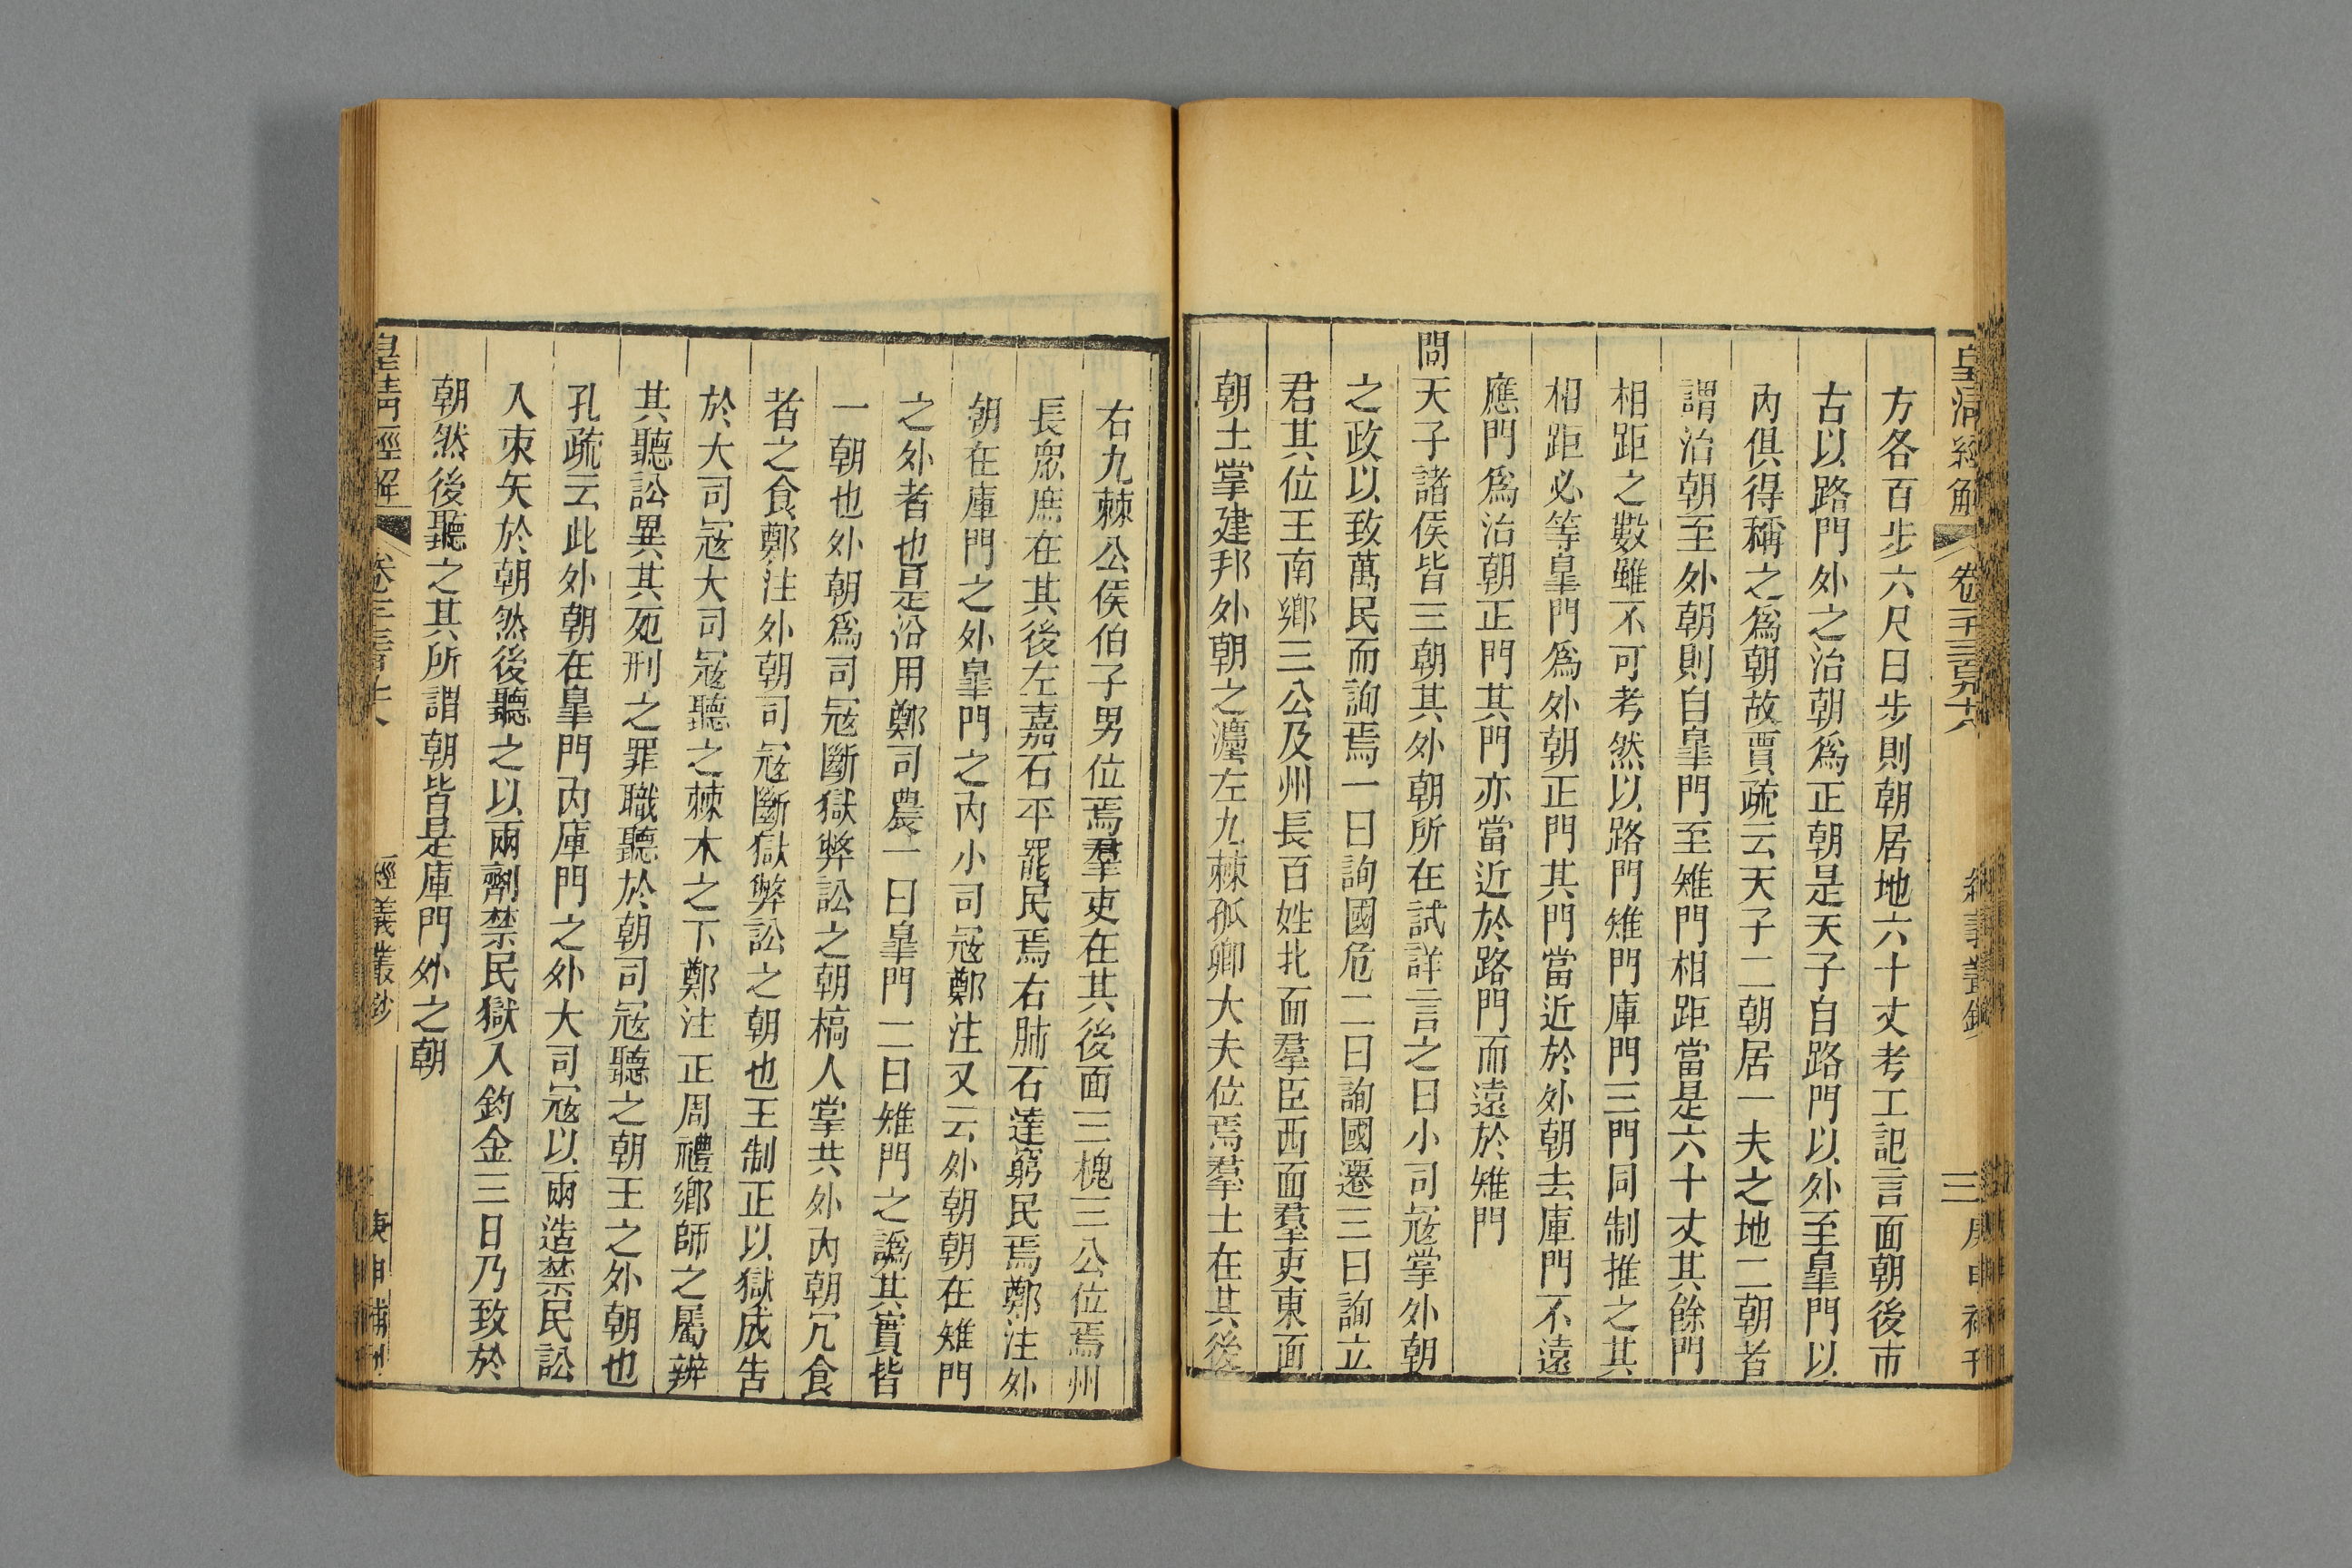 方各百步六尺曰步則朝居地六十丈考工記言面朝後市
古以路門外之治朝爲正朝是天子自路門以外至臯門以
內俱得稱之爲朝故賈疏云天子二朝居一夫之地二朝者
謂治朝至外朝則自臯門至雉門相距當是六十丈其餘門
相距之數雖不可考然以路門雉門庫門三門同制推之其
相距必等臯門爲外朝正門其門當近於外朝去庫門不遠
應門爲治朝正門其門亦當近於路門而遠於雉門
問天子諸侯皆三朝其外朝所在試詳言之曰小司寇掌外朝
之政以致萬民而詢焉一曰詢國危二曰詢國遷三曰詢立
君其位王南鄉三公及州長百姓北面羣臣西面羣吏東面
朝士掌建邦外朝之灋左九棘孤卿大夫位焉羣士在其後
右九棘公侯伯子男位焉羣吏在其後面三槐三公位焉州
長眾庶在其後左嘉石平罷民焉右肺石達窮民焉鄭注外
朝在庫門之外臯門之內小司寇鄭注又云外朝朝在雉門
之外者也是沿用鄭司農一曰臯門二曰雉門之譌其實皆
一朝也外朝爲司寇斷獄弊訟之朝槁人掌共外內朝冗食
者之食鄭注外朝司寇斷獄弊訟之朝也王制正以獄成告
於大司寇大司寇聽之棘木之下鄭注正周禮鄉師之屬辨
其聽訟異其死刑之罪職聽於朝司寇聽之朝王之外朝也
孔疏云此外朝在臯門內庫門之外大司寇以兩造禁民訟
入束矢於朝然後聽之以兩劑禁民獄入鈞金三日乃致於
朝然後聽之其所謂朝皆是庫門外之朝
皇清經解
經義叢鈔
庚申補刊